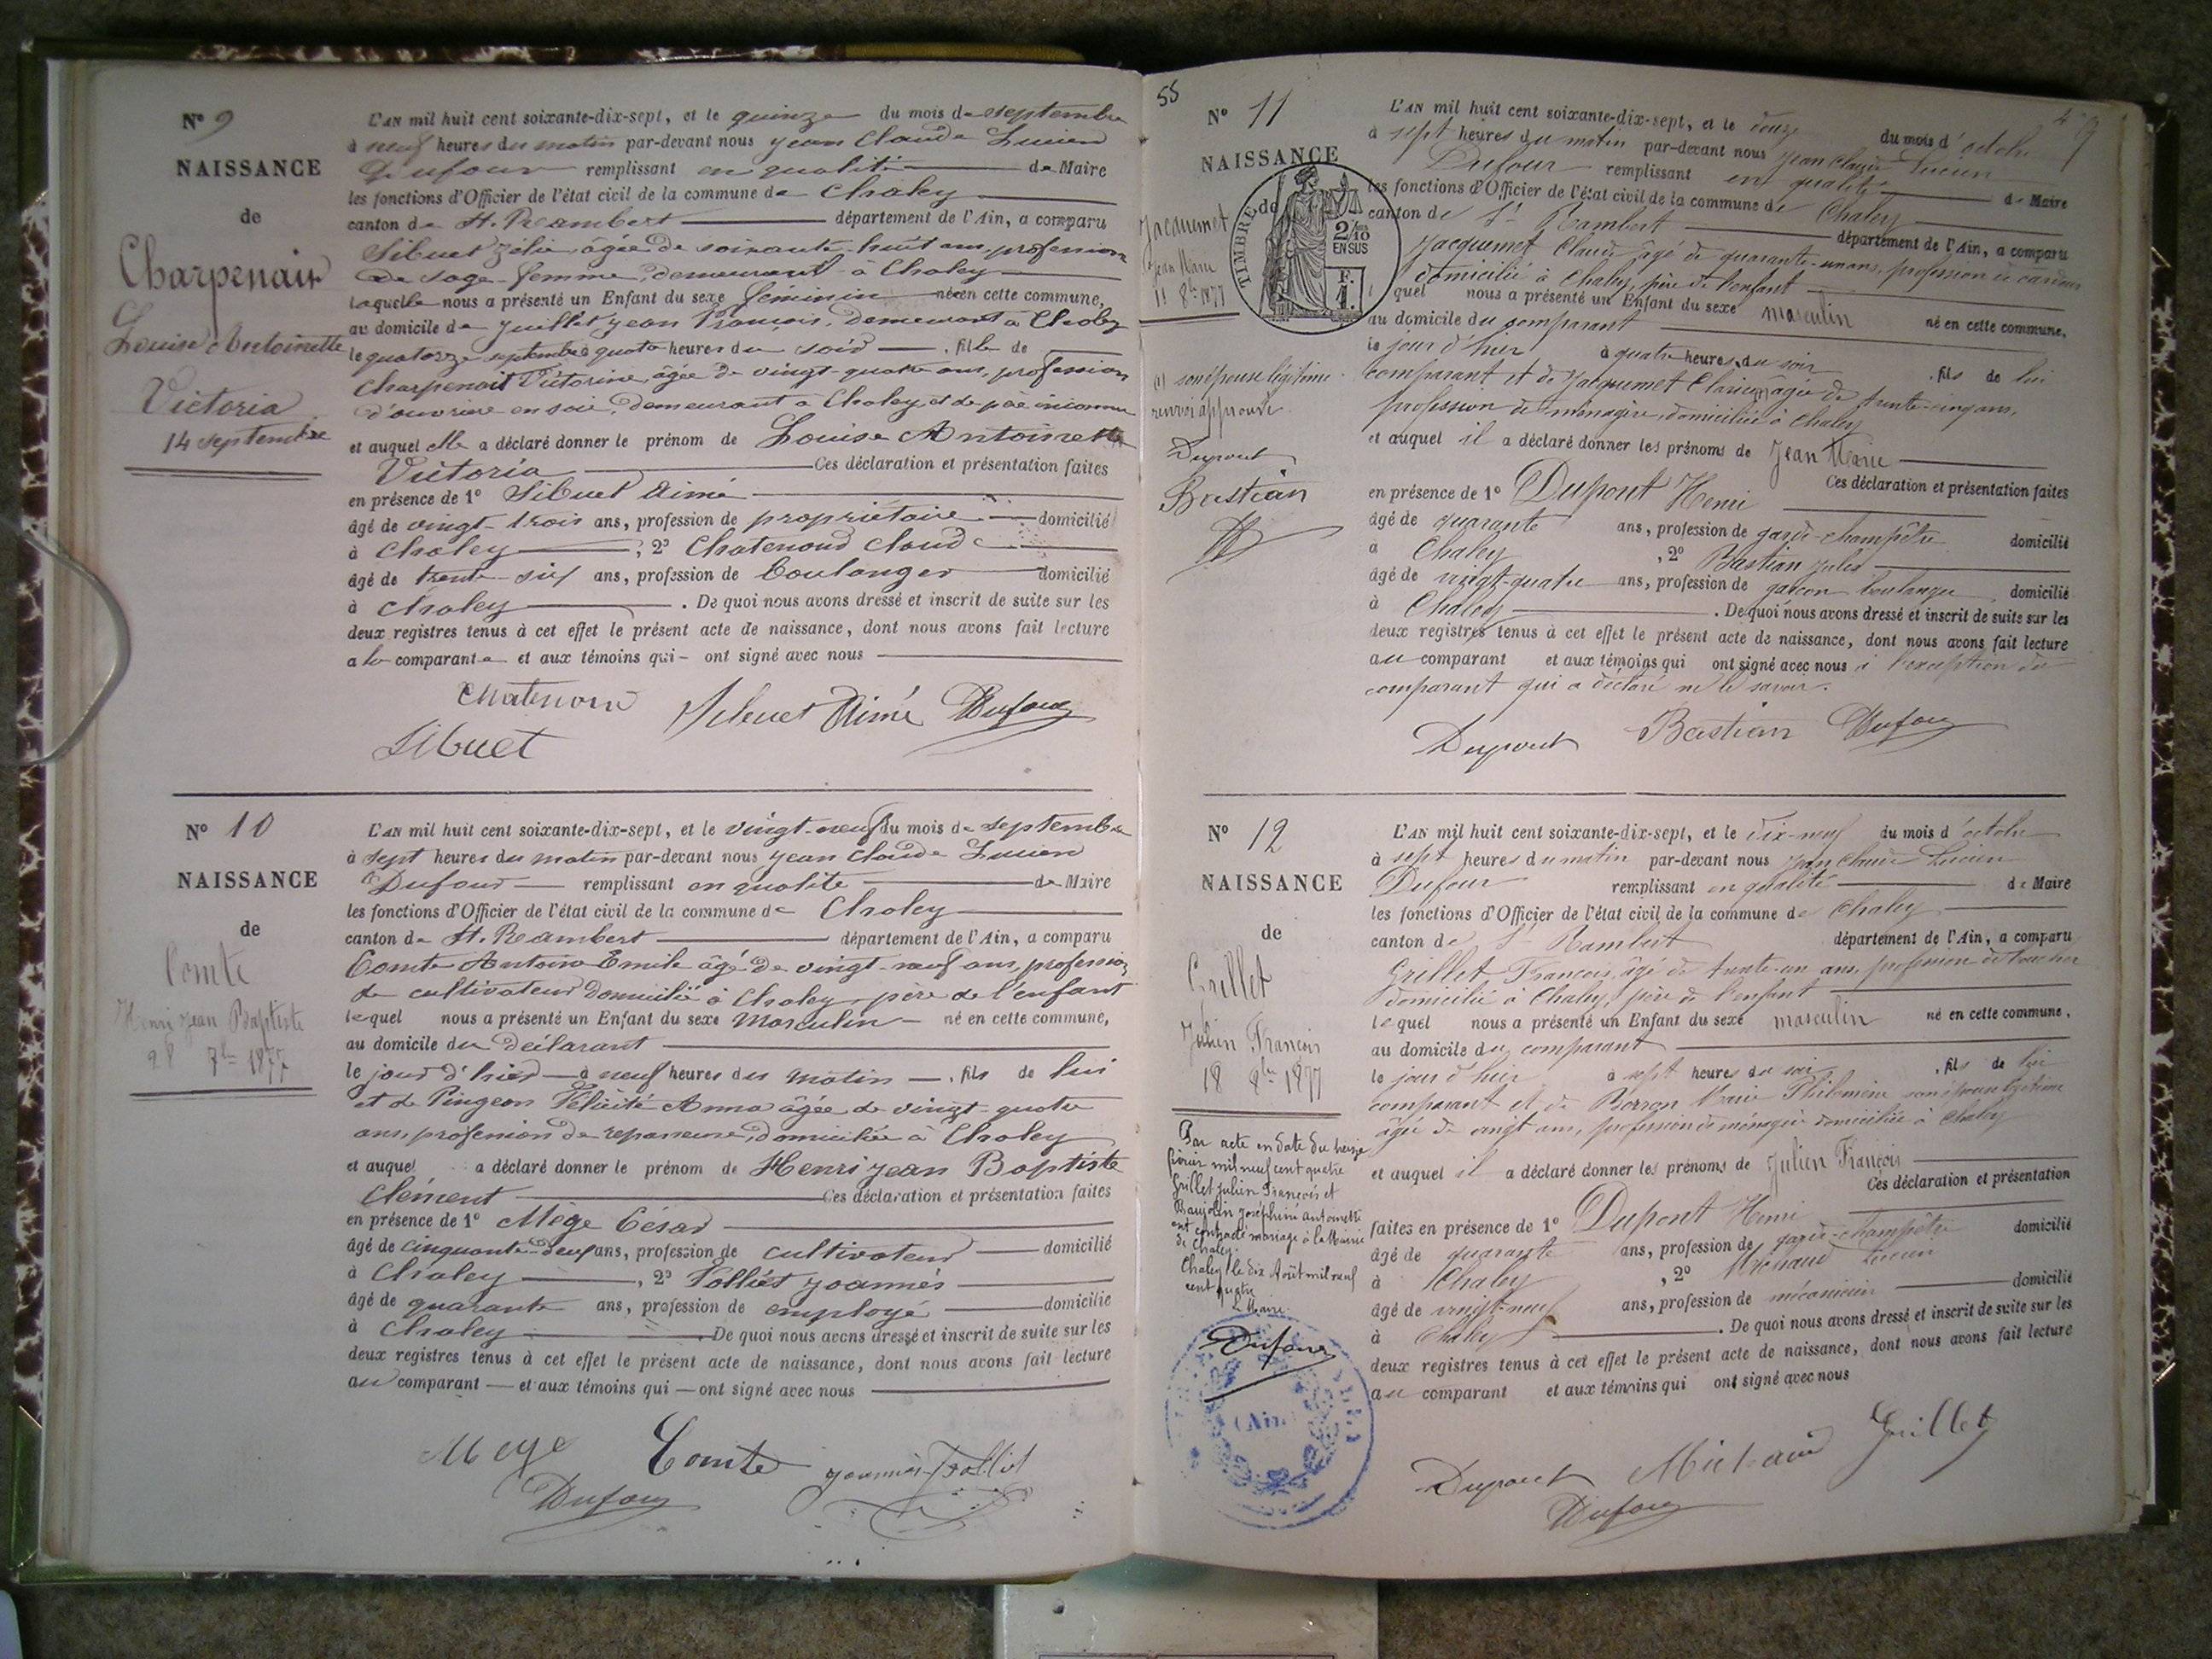 N° 9
NAISSANCE
de
Charpenait
Louise Antoinette
Victoria
14 septembre
L'AN mil huit cent soixante-dix-sept, et le quinze du mois de septembre
à neuf heures du matin par-devant nous Jean Claude Lucien
Dufour remplissant en qualité de Maire
les fonctions d'Officier de l'état civil de la commune de Chaley
canton de St. Rambert département de l'Ain, a comparu
Sibuet Zélie, âgée de soixante-huit ans, profession
de sage-femme, demeurant à Chaley
laquelle nous a présenté un Enfant du sexe féminin née en cette commune,
au domicile de Juillet Jean François, demeurant à Chaley
le quatorze septembre à quatre heures du soir, fille de
Charpenait Victorine, âgée de vingt-quatre ans, profession
d'ouvrière en soie, demeurant à Chaley, et de père inconnu
et auquel elle a déclaré donner le prénom de Louise Antoinette
Victoria Ces déclaration et présentation faites
en présence de 1° Sibuet Aimé
âgé de vingt-trois ans, profession de propriétaire domicilié
à Chaley ; 2° Chatenoud Claude
âgé de trente-six ans, profession de boulanger domicilié
à Chaley. De quoi nous avons dressé et inscrit de suite sur les
deux registres tenus à cet effet le présent acte de naissance, dont nous avons fait lecture
a la comparante et aux témoins qui ont signé avec nous
Sibuet Aimé Dufour
Sibuet
N° 10
NAISSANCE
de
Comte
Henri Jean Baptiste
28 7bre 1877
L'AN mil huit cent soixante-dix-sept, et le vingt-neuf du mois de septembre
à sept heures du matin par-devant nous Jean Claude Lucien
Dufour remplissant en qualité de Maire
les fonctions d'Officier de l'état civil de la commune de Chaley
canton de St. Rambert département de l'Ain, a comparu
Comte Antoine Emile âgé de vingt-neuf ans, profession
de cultivateur domicilié à Chaley, père de l'enfant
lequel nous a présenté un Enfant du sexe masculin né en cette commune,
au domicile du déclarant
le jour d'hier à neuf heures du matin, fils de lui
et de Pingeon Félicité Anna âgée de vingt-quatre
ans, profession de repasseuse, domiciliée à Chaley
et auquel a déclaré donner le prénom de Henri Jean Baptiste
Clément Ces déclaration et présentation faites
en présence de 1° Mège César
âgé de cinquante-deux ans, profession de cultivateur domicilié
à Chaley, 2° Folliet Joannès
âgé de quarante ans, profession de employé domicilié
à Chaley De quoi nous avons dressé et inscrit de suite sur les
deux registres tenus à cet effet le présent acte de naissance, dont nous avons fait lecture
au comparant et aux témoins qui ont signé avec nous
Mege Comte
Dufour
55
N° 11
NAISSANCE
de
TIMBRE
2/10
EN SUS
F.
1.
Jacquemet
Jean Marie
11 8bre 1877
(1) son épouse légitime
renvoi approuvé
Dupont
Bastian
L'AN mil huit cent soixante-dix-sept, et le douze du mois d'octobre
à sept heures du matin par-devant nous Jean Claude Lucien
Dufour remplissant en qualité de Maire
les fonctions d'Officier de l'état civil de la commune de Chaley
canton de St Rambert département de l'Ain, a comparu
Jacquemet Claude, âgé de quarante-un ans, profession de
domicilié à Chaley, père de l'enfant
quel nous a présenté un Enfant du sexe masculin né en cette commune,
au domicile du comparant
le jour d'hier à quatre heures du soir, fils de lui
comparant et de Jacquemet (1) âgée de trente-cinq ans,
profession de ménagère, domiciliée à Chaley
et auquel il a déclaré donner les prénoms de Jean Marie
Ces déclaration et présentation faites
en présence de 1° Dupont Henri
âgé de quarante ans, profession de garde-champêtre domicilié
à Chaley, 2° Bastian Jules
âgé de vingt-quatre ans, profession de garçon boulanger, domicilié
à Chaley. De quoi nous avons dressé et inscrit de suite sur les
deux registres tenus à cet effet le présent acte de naissance, dont nous avons fait lecture
au comparant et aux témoins qui ont signé avec nous à l'exception du
comparant qui a déclaré ne le savoir.
Dupont Bastian Dufour
N° 12
NAISSANCE
de
Grillet
Julien François
18 8bre 1877
Par acte en date du treize
février mil neuf cent quatre
Grillet Julien François et
Joséphine Antoinette
ont contracté mariage à la Mairie
de Chaley.
Chaley, le dix Août mil neuf
cent quatre
Le Maire
Dufour
(Ain)
L'AN mil huit cent soixante-dix-sept, et le dix-neuf du mois d'octobre
à sept heures du matin par-devant nous Jean Claude Lucien
Dufour remplissant en qualité de Maire
les fonctions d'Officier de l'état civil de la commune de Chaley
canton de St Rambert département de l'Ain, a comparu
Grillet François, âgé de trente-un ans, profession de
domicilié à Chaley, père de l'enfant
lequel nous a présenté un Enfant du sexe masculin né en cette commune,
au domicile du comparant
le jour d'hier à sept heures du soir, fils de lui
comparant et de Borron Marie Philomène son épouse légitime
âgée de vingt ans, profession de ménagère domiciliée à Chaley
et auquel il a déclaré donner les prénoms de Julien François
Ces déclaration et présentation
faites en présence de 1° Dupont Henri
âgé de quarante ans, profession de garde-champêtre domicilié
à Chaley, 2° Michaud Lucien
âgé de vingt-neuf ans, profession de mécanicien domicilié
à Chaley. De quoi nous avons dressé et inscrit de suite sur les
deux registres tenus à cet effet le présent acte de naissance, dont nous avons fait lecture
au comparant et aux témoins qui ont signé avec nous
Dupont Michaud Grillet
Dufour